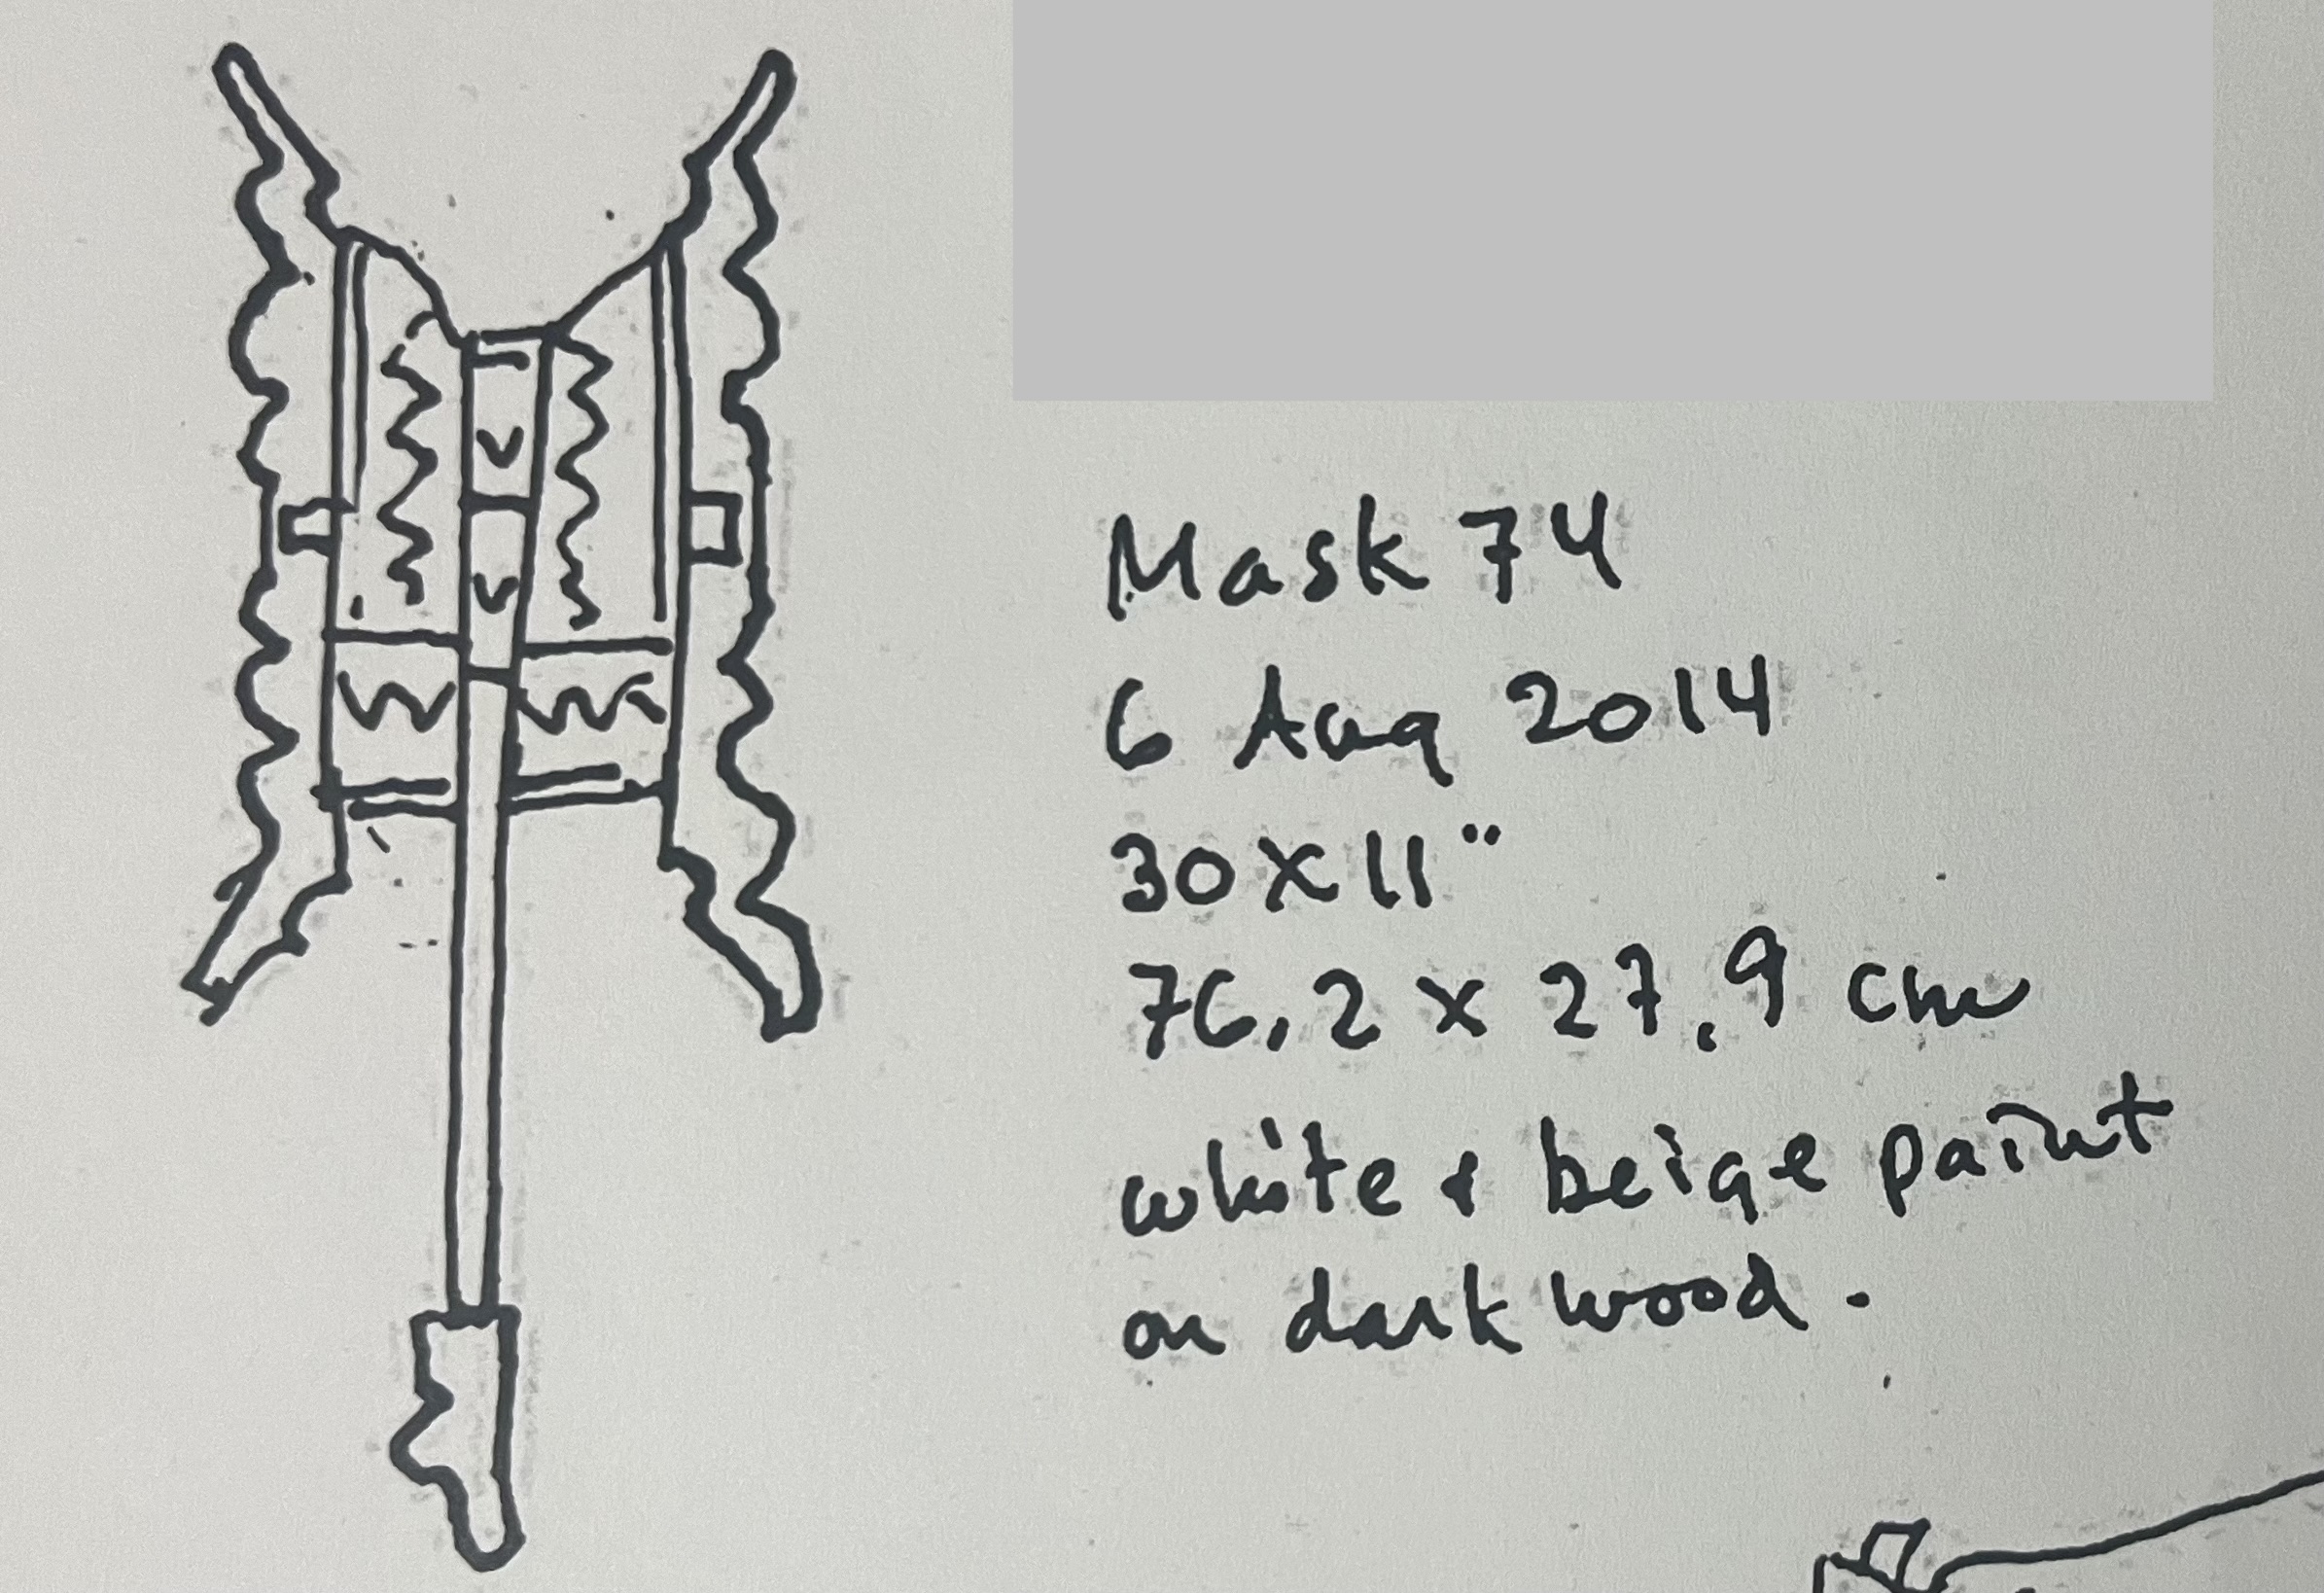 Mask 74
6 Aug 2014
30x11"
76.2 x 27.9 cm
white & beige paint
on dark wood.